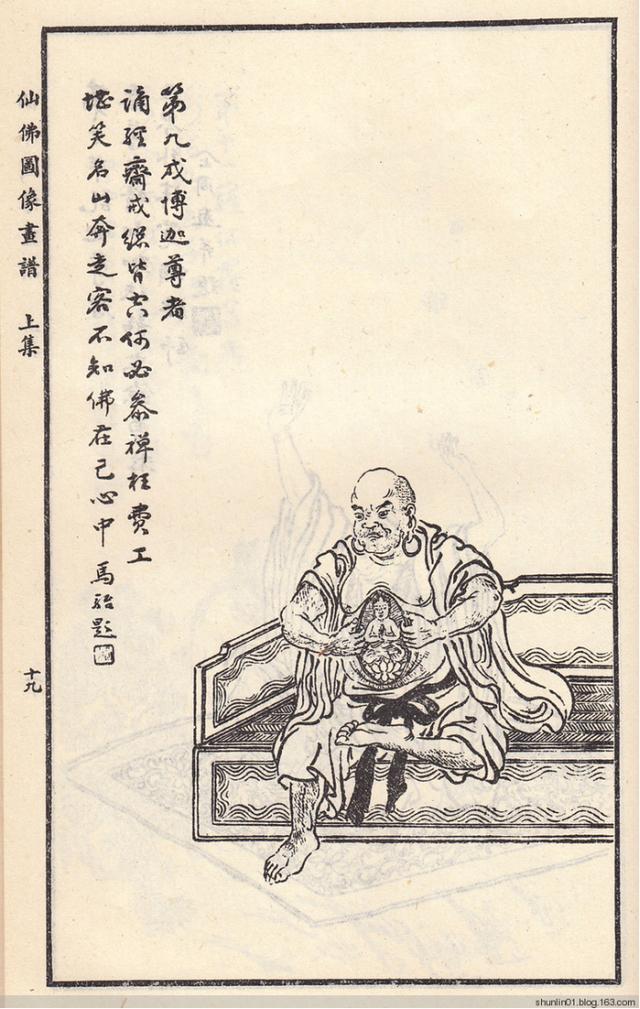 第九戍博迦尊者
誦經齋戒總皆空何必參禪枉費工
堪笑名山奔走客不知佛在己心中 馬駘題
仙佛圖像畫譜 上集
十九
shunlin01.blog.163.com